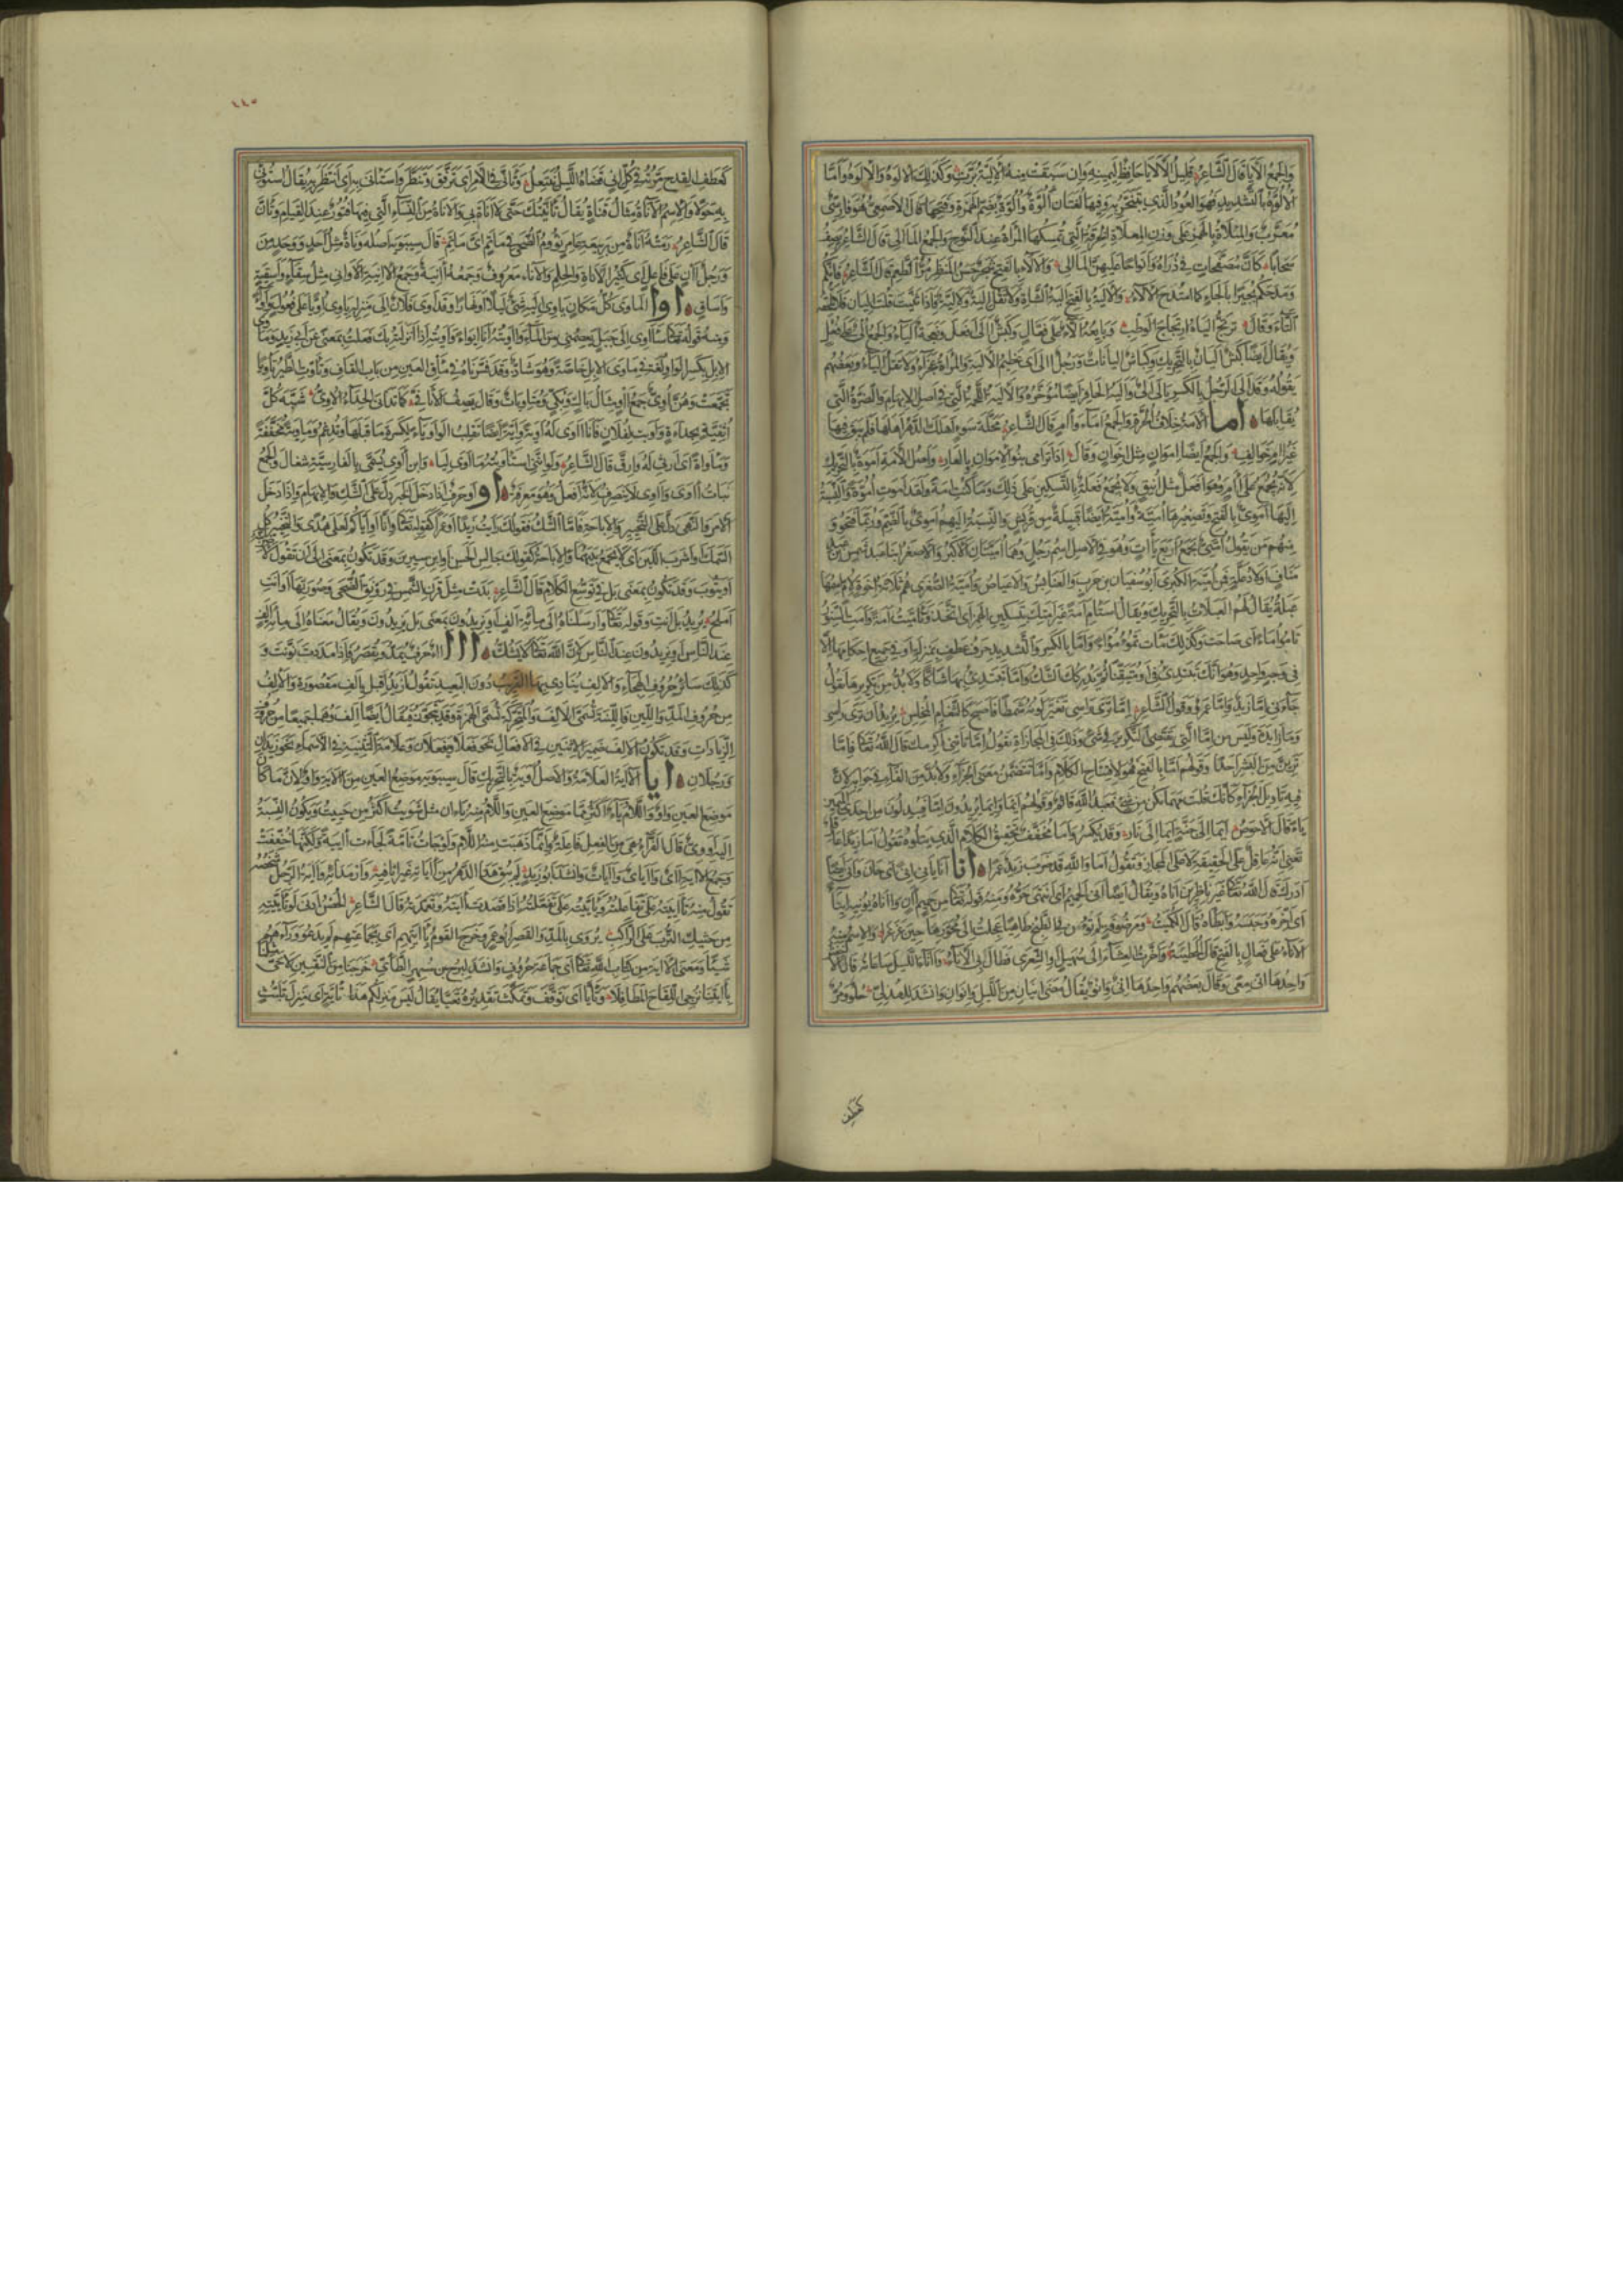 والجمع الألايا قال الشاعر قليل الألايا حافظ ليمينه وإن سبقت منه الألية برت وكذلك الألوة والإلوة وأما
الألوة بالتشديد فهو العود الذي يتبخر به وفيها لغتان ألوة وألوة بضم الهمزة وفتحها قال الأصمعي هو فارسي
معرب والمئلاة بالهمز على وزن المعلاة الخرقة التي تمسكها المرأة عند النوح والجمع المآلي قال الشاعر يصف
سحابا كأن مصفحات في ذراه وأنواحا عليهن المآلي والألاء بالفتح شجر حسن المنظر مر الطعم قال الشاعر فإنكم
ومدحكم بجيرا أبا لجأ كما امتدح الألاء والألية بالفتح ألية الشاة ولا تقل إلية ولا لية فإذا ثنيت قلت أليان فلا تلحقه
التاء وقال ترتج ألياه ارتجاج الوطب وبائعه ألاء على فعال وكبش آلى على أفعل ونعجة ألياء والجمع ألي على فعل
ويقال أيضا كبش أليان بالتحريك وكباش أليانات ورجل آلى أي عظيم الألية والمرأة عجزاء ولا تقل ألياء وبعضهم
يقوله وقد ألي الرجل بالكسر يألى ألى وألية الحافر أيضا مؤخره والألية اللحمة التي في أصل الإبهام والضرة التي
تقابلها اما الأمة خلاف الحرة والجمع إماء وآم قال الشاعر محلة سوء أهلك الدهر أهلها فلم يبق فيها
غير آم خوالف والجمع أيضا إموان مثل إخوان وقال إذا ترامى بنو الإموان بالعار وأصل الأمة أموة بالتحريك
لأنه يجمع على آم وهو أفعل مثل أينق ولا يجمع فعلة بالتسكين على ذلك وما كنت أمة ولقد أموت أموة والنسبة
إليها أموي بالفتح وتصغيرها أمية وأمية أيضا قبيلة من قريش والنسبة إليهم أموي بالضم وربما فتحوا و
منهم من يقول أميي يجمع أربع ياءات وهو في الأصل اسم رجل وهما أميتان الأكبر والأصغر ابنا عبد شمس بن عبد
مناف أولاد علة فمن أمية الكبرى أبو سفيان بن حرب والعنابس والأعياص وأمية الصغرى هم ثلاثة إخوة لأم اسمها
عبلة يقال لهم العبلات بالتحريك ويقال استأم أمة غير أمتك بتسكين الهمزة أي اتخذ وتأميت أمة وأمت السنور
تأمو أماء أي صاحت وكذلك ماءت تموء مواء وإما بالكسر والتشديد حرف عطف بمنزلة أو في جميع أحكامها إلا
في وجه واحد وهو أنك تبتدئ في أو متيقنا ثم يدركك الشك وإما تبتدئ بها شاكا ولا بد من تكريرها تقول
جاءني إما زيد وإما عمرو وقول الشاعر إما تري رأسي تغير لونه شمطا فأصبح كالثغام المخلس يريد إن تري رأسي
وما زائدة وليس من إما التي تقتضي التكرير في شيء وذلك في المجازاة تقول إما تأتني أكرمك قال الله تعالى فإما
ترين من البشر أحدا وقولهم أما بالفتح فهو لافتتاح الكلام وأما تتضمن معنى الجزاء ولا بد من الفاء في جوابه لأن
فيه تأويل الجزاء كأنك قلت مهما يكن من شيء فعبد الله قائم وقولهم أيما وإيما يريدون أما فيبدلون من إحدى الميمين
ياء قال الأحوص أيما إلى جنة أيما إلى نار وقد يكسر وأما مخفف تحقيق الكلام الذي يتلوه تقول أما إن زيدا عاقل
تعني أنه عاقل على الحقيقة لا على المجاز وتقول أما والله قد ضرب زيد عمرا انا أنى يأني إنى أي حان وأنى أيضا
أدرك قال الله تعالى غير ناظرين إناه ويقال أيضا أنى الحميم أي انتهى حره ومنه قوله تعالى حميم آن وآناه يؤنيه إيناء
أي أخره وحبسه وأبطأه قال الكميت ومرضوفة لم تؤن في الطبخ طاهيا عجلت إلى محورها حين غرغرا والاسم منه
الأناء على فعال بالفتح قال الحطيئة وآخرت العشاء إلى سهيل أو الشعرى فطال بي الأناء وآناء الليل ساعاته قال الأخفش
واحدها إنى مثال معى وقال بعضهم واحدها إني وإنو يقال مضى إنيان من الليل وإنوان وأنشد للهذلي حلو ومر
كعطف
١١٥
كعطف القدح مرته في كل إني قضاه الليل ينتعل وتأنى في الأمر أي ترفق وتنظر واستأنى به أي انتظر به يقال استوني
به حولا والاسم الأناة مثال قناة يقال تأنيتك حتى لا أناة بي والأناة من النساء التي فيها فتور عند القيام وتأن
قال الشاعر رمته أناة من ربيعة عامر نؤوم الضحى في مأتم أي مأتم قال سيبويه أصله وناة مثل أحد ووحد من
ورجل آن على فاعل أي كثير الأناة والحلم والإناء معروف وجمعه آنية وجمع الآنية الأواني مثل سقاء وأسقية
وأساق اوا المأوى كل مكان يأوي إليه شيء ليلا أو نهارا وقد أوى فلان إلى منزله يأوي أويا على فعول وإواء
ومنه قوله تعالى سآوي إلى جبل يعصمني من الماء وآويته أنا إيواء وأويته إذا أنزلته بك فعلت بمعنى عن أبي زيد ومأوي
الإبل بكسر الواو لغة في مأوى الإبل خاصة وهو شاذ وقد فسرناه في مأقي العين من باب القاف وتأوت الطير تأويا
تجمعت وهن أوي جمع آو مثال باك وبكي ومتأويات وقال يصف الأثافي كما تدانى الحدأ الأوي شبه كل
أثفية بحدأة وأويت لفلان فأنا آوي له أوية وأية أيضا تقلب الواو ياء لكسرة ما قبلها وتدغم ومأوية مخففة
ومأواة أي أرثي له وأرق قال الشاعر ولو أنني استأويته ما أوى ليا وابن آوى يسمى بالفارسية شغال والجمع
بنات آوى وآوى لا ينصرف لأنه أفعل وهو معرفة او أو حرف إذا دخل الخبر دل على الشك والإبهام وإذا دخل
الأمر والنهي دل على التخيير والإباحة فأما الشك فقولك رأيت زيدا أو عمرا كقوله تعالى وإنا أو إياكم لعلى هدى والتخيير كل
السمك أو اشرب اللبن أي لا تجمع بينهما والإباحة كقولك جالس الحسن أو ابن سيرين وقد تكون بمعنى إلى أن تقول لأضربنه
أو يتوب وقد تكون بمعنى بل في توسع الكلام قال الشاعر بدت مثل قرن الشمس في رونق الضحى وصورتها أو أنت
أملح يريد بل أنت وقوله تعالى وأرسلناه إلى مائة ألف أو يزيدون بمعنى بل يزيدون ويقال معناه إلى مائة ألف
عند الناس أو يزيدون عند الناس لأن الله تعالى لا يشك ااا آ حرف يمد ويقصر فإذا مددت نونت و
كذلك سائر حروف الهجاء والألف ينادى بها القريب دون البعيد تقول أزيد أقبل بألف مقصورة والألف
من حروف المد واللين فاللينة تسمى الألف والمتحركة تسمى الهمزة وقد يتجوز فيقال أيضا ألف وهما جميعا من حروف
الزيادات وقد تكون الألف ضمير الاثنين في الأفعال نحو فعلا ويفعلان وعلامة التثنية في الأسماء نحو زيدان
ورجلان ايا الآية العلامة والأصل أوية بالتحريك قال سيبويه موضع العين من الآية واو لأن ما كان
موضع العين واو واللام ياء أكثر مما موضع العين واللام منه ياءان مثل شويت أكثر من حييت وتكون النسبة
إليه أووي قال الفراء هي من الفعل فاعلة وإنما ذهبت منه اللام ولو جاءت تامة لجاءت آيية ولكنها خففت
وجمع الآية آي وآياي وآيات وأنشد أبو زيد لم يبق هذا الدهر من آيائه غير أثافيه وأرمدائه وآية الرجل شخصه
تقول منه تآييته على تفاعلته وتأييته على تفعلته إذا قصدت آيته وتعمدته قال الشاعر الحصن أدنى لو تأييته
من حثيك الترب على الراكب يروى بالمد والقصر أبو عمرو خرج القوم بآيتهم أي بجماعتهم لم يدعوا وراءهم
شيئا ومعنى الآية من كتاب الله تعالى أي جماعة حروف وأنشد لبرج بن مسهر الطائي خرجنا من النقبين لا حي مثلنا
بآيتنا نزجي اللقاح المطافلا وتأيا أي توقف وتمكث تقديره تعيا يقال ليس منزلكم هذا تأية أي منزل تلبث